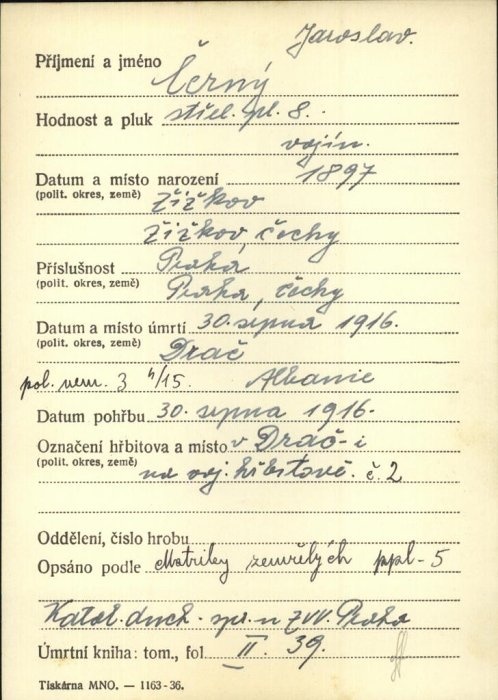 Jaroslav.
Příjmení a jméno Černý
Hodnost a pluk střel. pl. 8.
vojín.
Datum a místo narození 1897
(polit. okres, země) Žižkov
Žižkov čechy
Příslušnost Praha
(polit. okres, země) Praha, čechy
Datum a místo úmrtí 30. srpna 1916.
(polit. okres, země) Drač
pol. nem. 3 4/15. Albanie
Datum pohřbu 30. srpna 1916.
Označení hřbitova a místo v Drač-i
(polit. okres, země) na voj. hřbitově č. 2
Oddělení, číslo hrobu
Opsáno podle Matriky zemřelých ppl-5
Katol. duch. spr. u ZVV. Praha
Úmrtní kniha: tom., fol. II. 39.
Tiskárna MNO. — 1163-36.